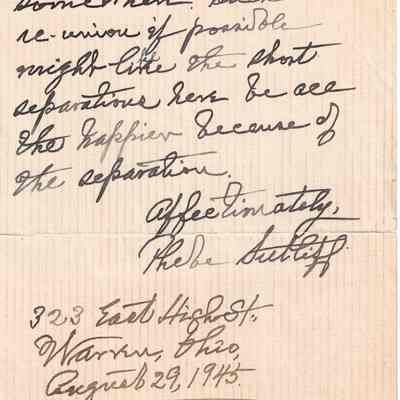 re-union if possible
might like the short
separations here be all
the happier because of
the separation.
Affectionately,
Phebe Sutliff.
323 East High St.,
Warren, Ohio,
August 29, 1945.